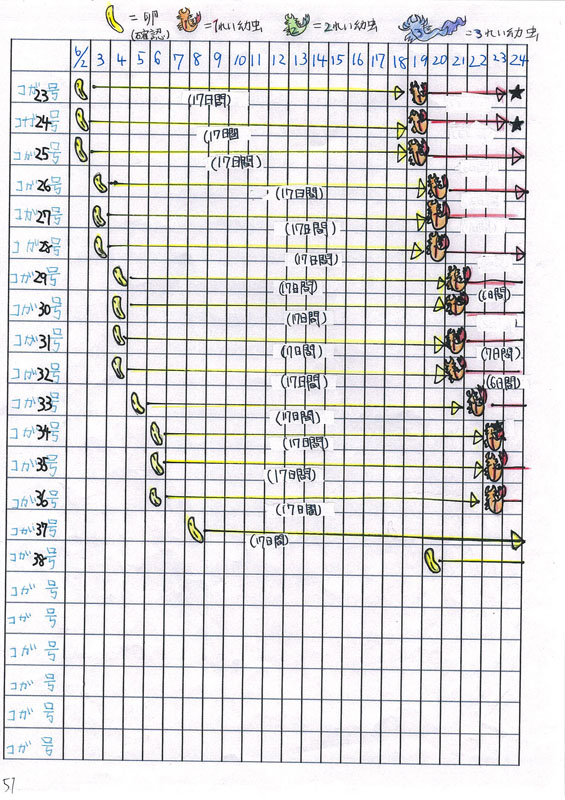 = 卵 = 1れい幼虫 = 2れい幼虫 = 3れい幼虫
(確認)
6/2 3 4 5 6 7 8 9 10 11 12 13 14 15 16 17 18 19 20 21 22 23 24
コガ23号 (17日間)
コガ24号 (17日間)
コガ25号 (17日間)
コガ26号 (17日間)
コガ27号 (17日間)
コガ28号 (17日間)
コガ29号 (17日間) (6日間)
コガ30号 (17日間)
コガ31号 (17日間) (7日間)
コガ32号 (17日間) (6日間)
コガ33号 (17日間)
コガ34号 (17日間)
コガ35号 (17日間)
コガ36号 (17日間)
コガ37号 (17日間)
コガ38号
コガ 号
コガ 号
コガ 号
コガ 号
コガ 号
コガ 号